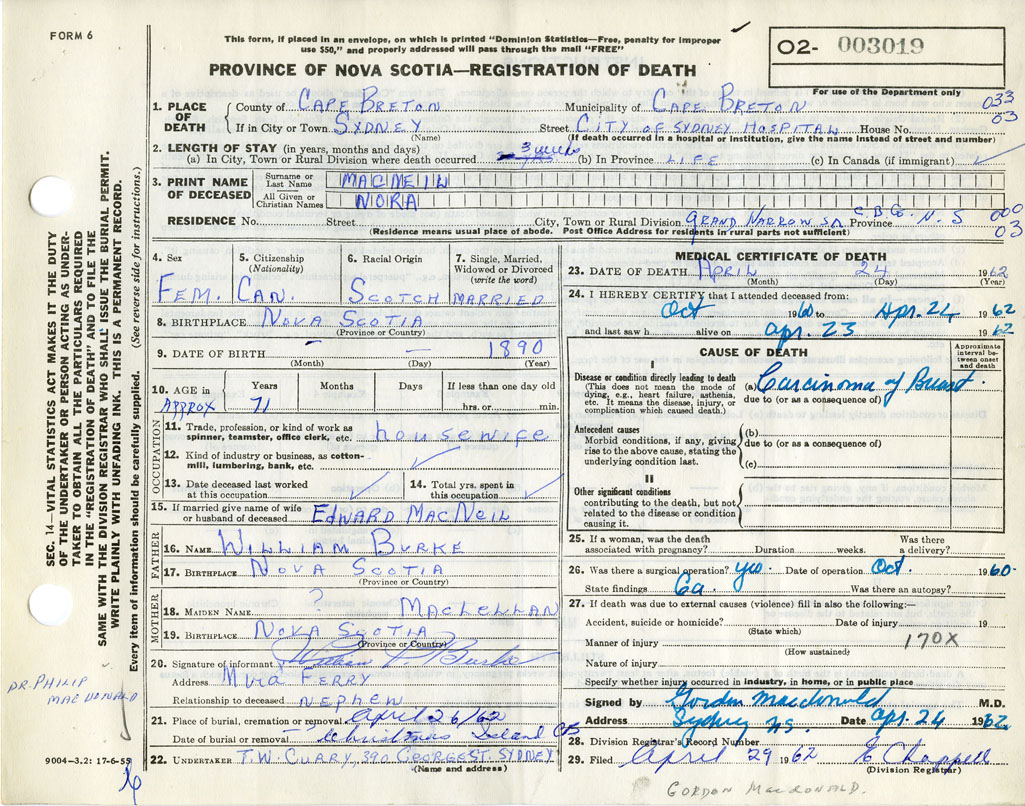 FORM 6
This form, if placed in an envelope, on which is printed "Dominion Statistics—Free, penalty for improper
use $50," and properly addressed will pass through the mail "FREE"
02- 003019
PROVINCE OF NOVA SCOTIA—REGISTRATION OF DEATH
For use of the Department only
1. PLACE OF DEATH County of CAPE BRETON Municipality of CAPE BRETON 033
If in City or Town SYDNEY Street CITY OF SYDNEY HOSPITAL House No. 03
(Name) (If death occurred in a hospital or institution, give the name instead of street and number)
2. LENGTH OF STAY (in years, months and days)
(a) In City, Town or Rural Division where death occurred 3 (b) In Province LIFE (c) In Canada (if immigrant)
3. PRINT NAME OF DECEASED Surname or Last Name MACNEIL
All Given or Christian Names NORA
RESIDENCE No. Street City, Town or Rural Division GRAND NARROWS Province N.S 000
(Residence means usual place of abode. Post Office Address for residents in rural parts not sufficient) 03
4. Sex FEM.
5. Citizenship (Nationality) CAN.
6. Racial Origin SCOTCH
7. Single, Married, Widowed or Divorced (write the word) MARRIED
8. BIRTHPLACE NOVA SCOTIA
(Province or Country)
9. DATE OF BIRTH — — 1890
(Month) (Day) (Year)
10. AGE in Years Months Days If less than one day old
APPROX 71 hrs. or min.
OCCUPATION
11. Trade, profession, or kind of work as spinner, teamster, office clerk, etc. housewife
12. Kind of industry or business, as cotton-mill, lumbering, bank, etc.
13. Date deceased last worked at this occupation
14. Total yrs. spent in this occupation
15. If married give name of wife or husband of deceased EDWARD MACNEIL
FATHER
16. NAME WILLIAM BURKE
17. BIRTHPLACE NOVA SCOTIA
(Province or Country)
MOTHER
18. MAIDEN NAME ? MACLELLAN
19. BIRTHPLACE NOVA SCOTIA
(Province or Country)
20. Signature of informant Burke
Address FERRY
Relationship to deceased NEPHEW
21. Place of burial, cremation or removal April 26/62
Date of burial or removal Christmas Island CB
22. UNDERTAKER T.W. CURRY, 390 GEORGE ST. SYDNEY
(Name and address)
MEDICAL CERTIFICATE OF DEATH
23. DATE OF DEATH APRIL 24 1962
(Month) (Day) (Year)
24. I HEREBY CERTIFY that I attended deceased from:
Oct 1960 to Apr. 24 62
and last saw h alive on apr. 23 1962
CAUSE OF DEATH
Approximate interval between onset and death
I
Disease or condition directly leading to death
(This does not mean the mode of dying, e.g., heart failure, asthenia, etc. It means the disease, injury, or complication which caused death.)
(a) Carcinoma of Breast.
due to (or as a consequence of)
Antecedent causes
Morbid conditions, if any, giving rise to the above cause, stating the underlying condition last.
(b)
due to (or as a consequence of)
(c)
II
Other significant conditions
contributing to the death, but not related to the disease or condition causing it.
25. If a woman, was the death associated with pregnancy? Duration weeks. Was there a delivery?
26. Was there a surgical operation? yes. Date of operation Oct. 1960.
State findings Ca Was there an autopsy?
27. If death was due to external causes (violence) fill in also the following:—
Accident, suicide or homicide? Date of injury 19
(State which)
Manner of injury 170X
(How sustained)
Nature of injury
Specify whether injury occurred in industry, in home, or in public place
Signed by Gordon Macdonald M.D.
Address Sydney N.S. Date apr. 24 1962
28. Division Registrar's Record Number
29. Filed April 29 1962 E Chappell
(Division Registrar)
GORDON MACDONALD.
SEC. 14—VITAL STATISTICS ACT MAKES IT THE DUTY
OF THE UNDERTAKER OR PERSON ACTING AS UNDER-
TAKER TO OBTAIN ALL THE PARTICULARS REQUIRED
IN THE "REGISTRATION OF DEATH" AND TO FILE THE
SAME WITH THE DIVISION REGISTRAR WHO SHALL ISSUE THE BURIAL PERMIT.
WRITE PLAINLY WITH UNFADING INK. THIS IS A PERMANENT RECORD.
Every item of information should be carefully supplied. (See reverse side for instructions.)
DR. PHILIP
MACDONALD
9004—3.2: 17-6-55